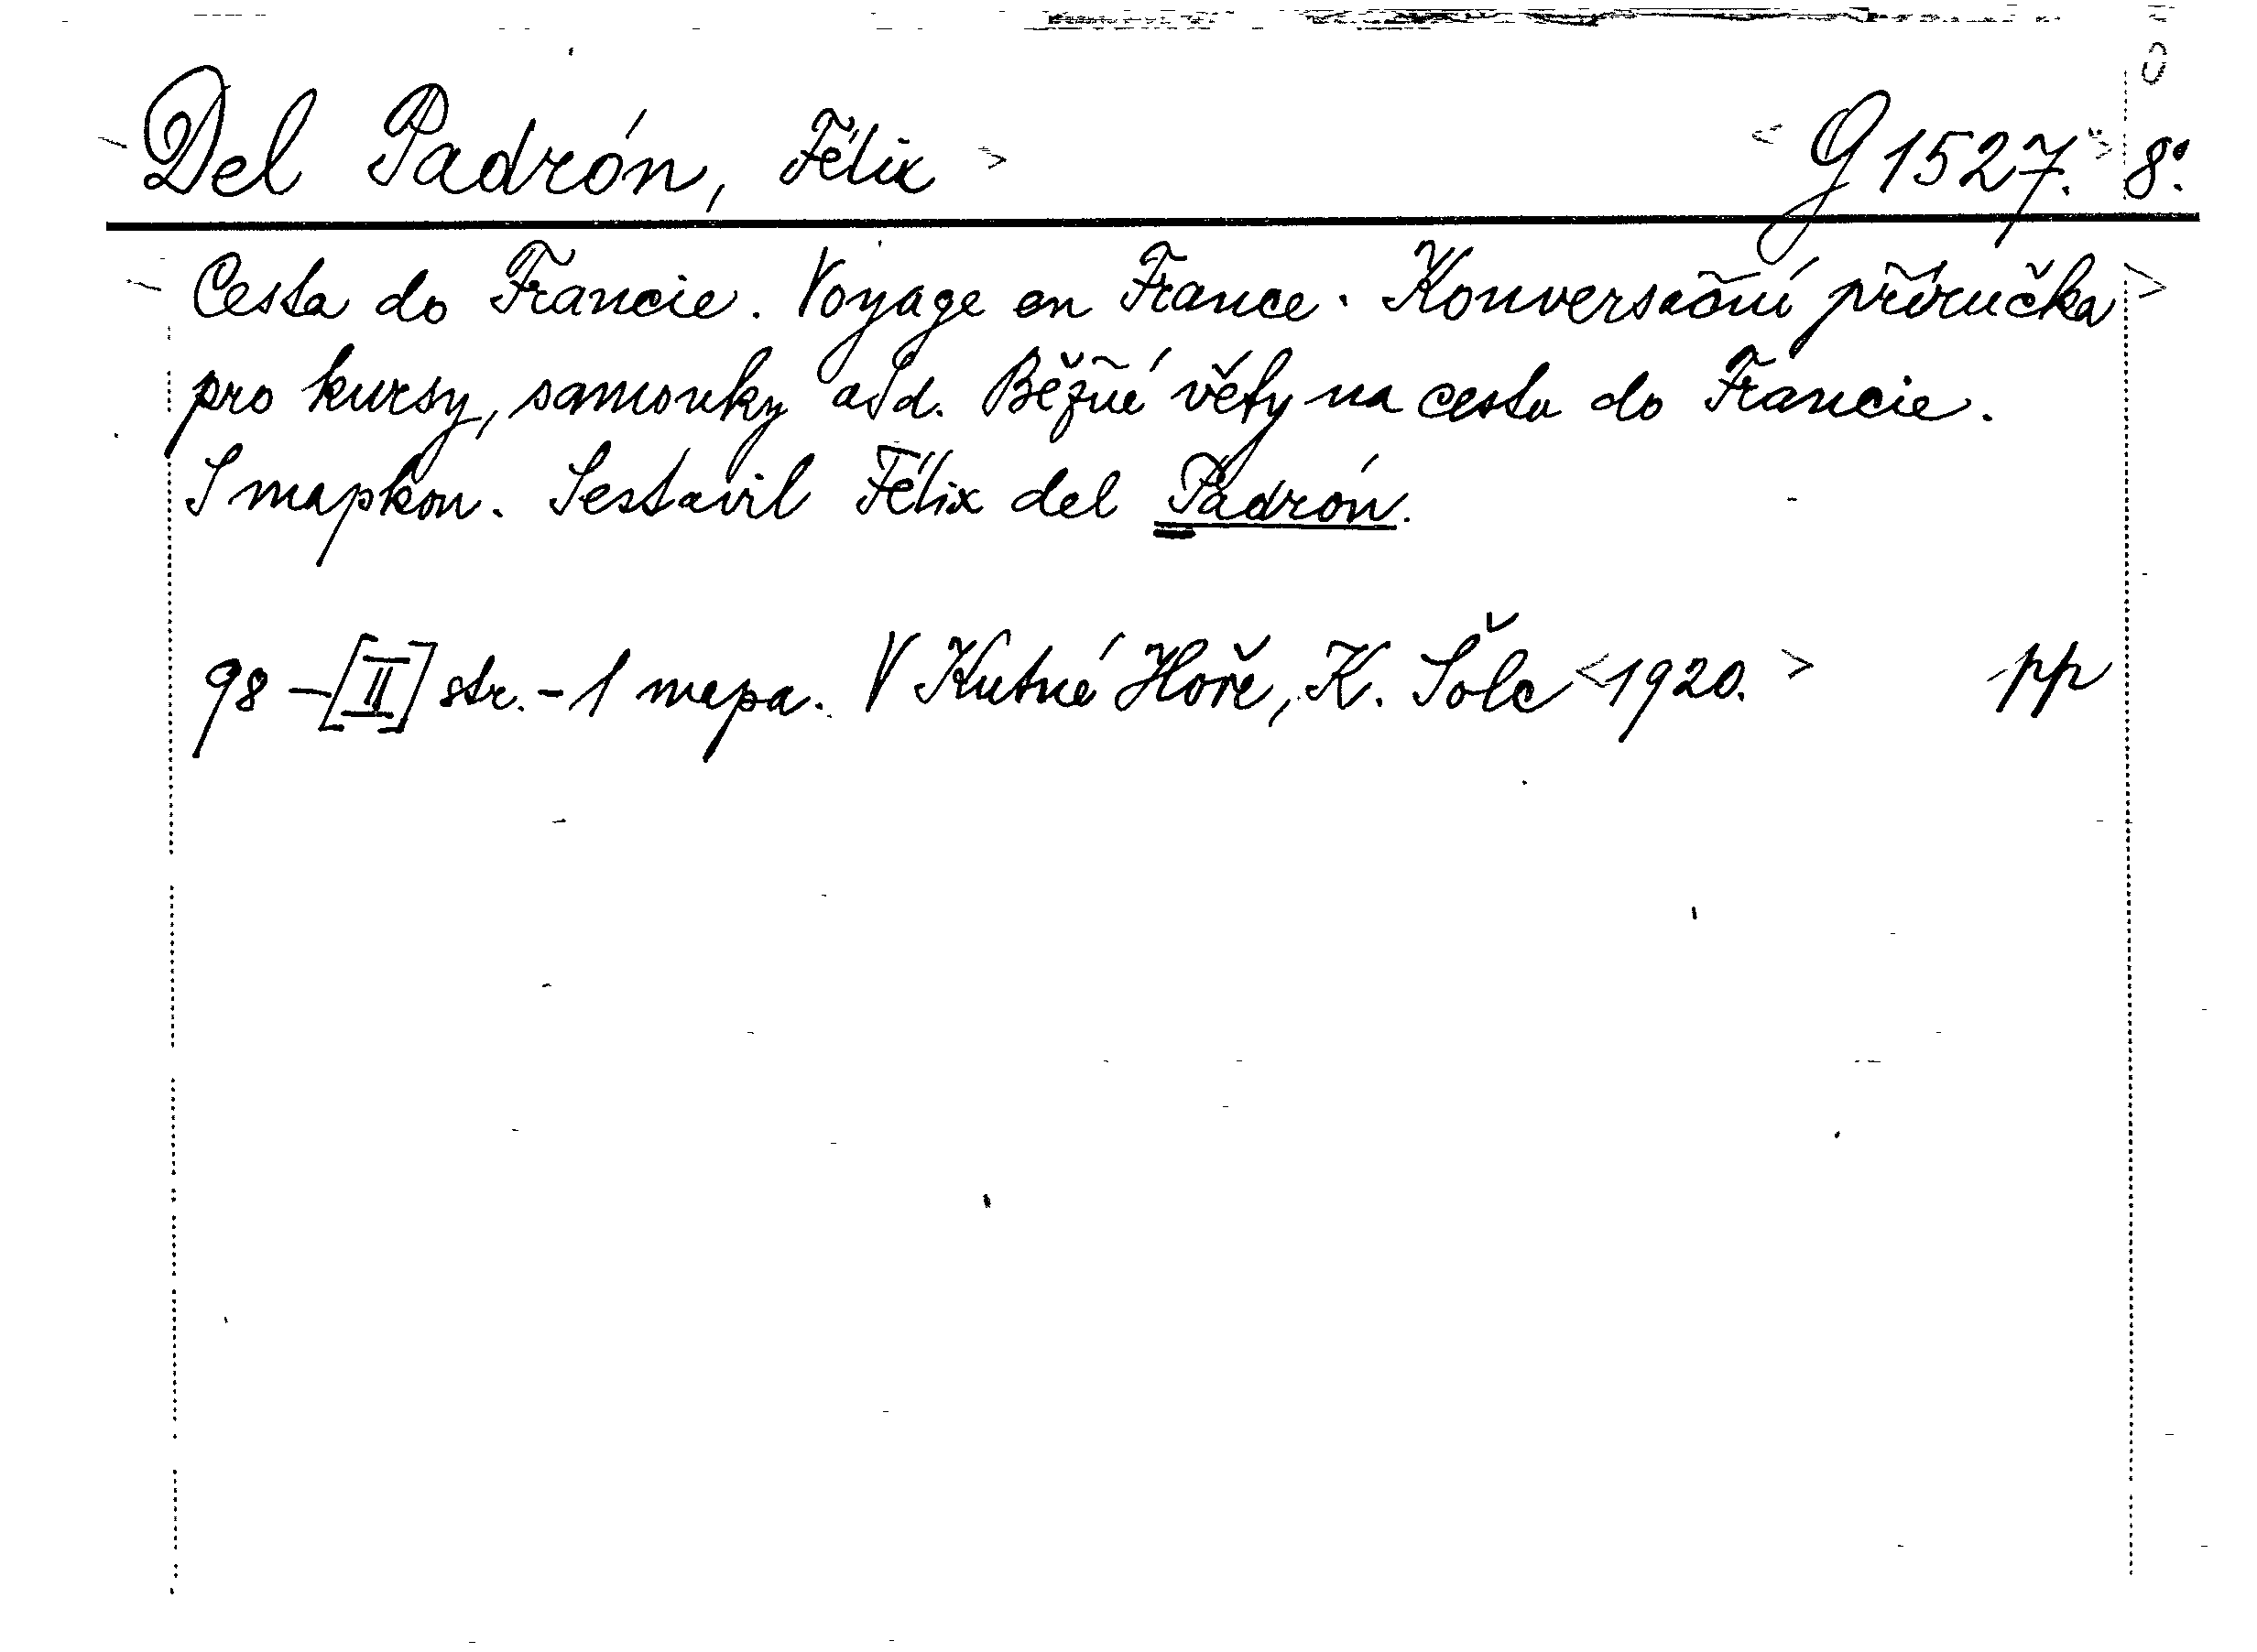 Del Padrón, Félix > < G 1527. > 8°.
Cesta do Francie. Voyage en France. Konversační příručka >
pro kursy, samouky atd. Běžné věty na cestu do Francie.
S mapkou. Sestavil Félix del Padrón.
98 - [II] str. - 1 mapa. V Kutné Hoře, K. Šolc <1920. > pp